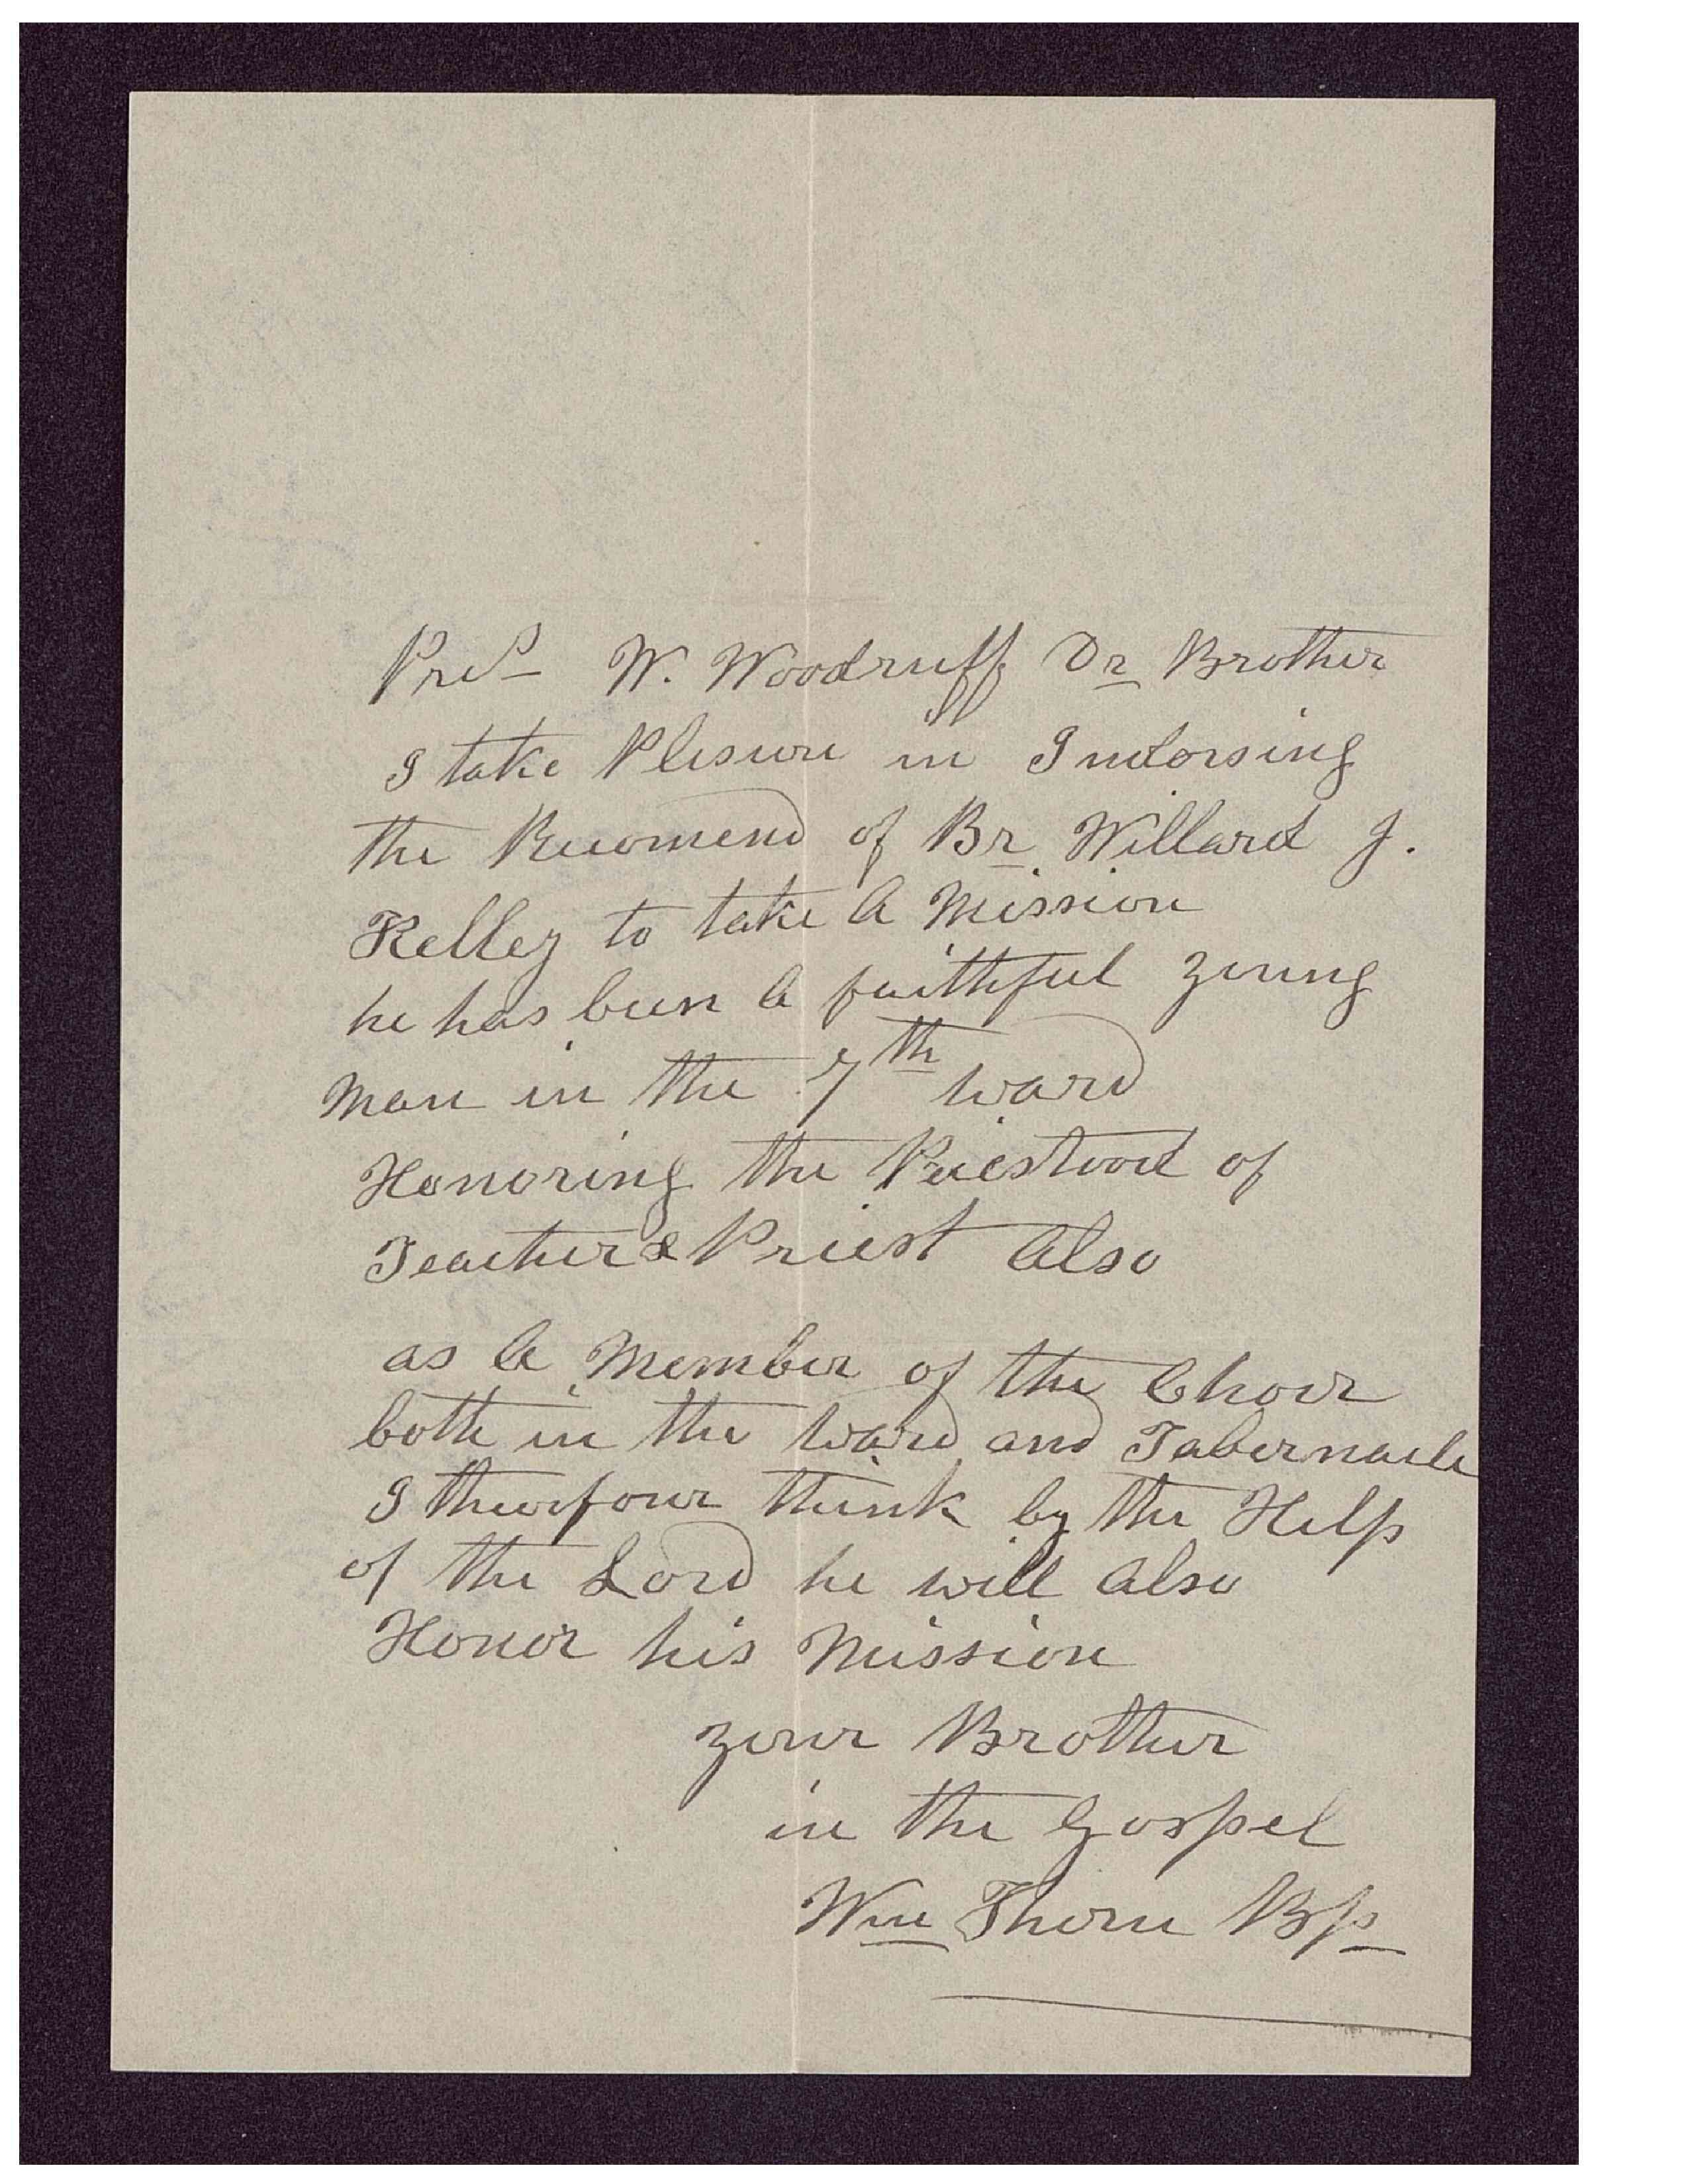 Pres W. Woodruff Dr Brother
I take Plesure in Indorsing
the Recomend of Br Willard J.
Kelley to take A Mission
he has been A faithful young
man in the 7th ward
Honoring the Priestood of
Teacher & Priest Also
as A Member of the Choir
both in the ward and Tabernacle
I therefour think by the Help
of the Lord he will Also
Honor his Mission
your Brother
in the Gospel
Wm Thorn Bp